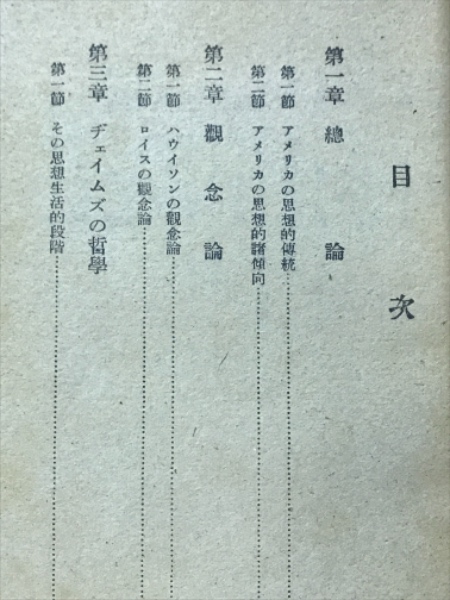 目次
第一章 總論
第一節 アメリカの思想的傳統
第二節 アメリカの思想的諸傾向
第二章 觀念論
第一節 ハウイソンの觀念論
第二節 ロイスの觀念論
第三章 ヂェイムズの哲學
第一節 その思想生活的段階